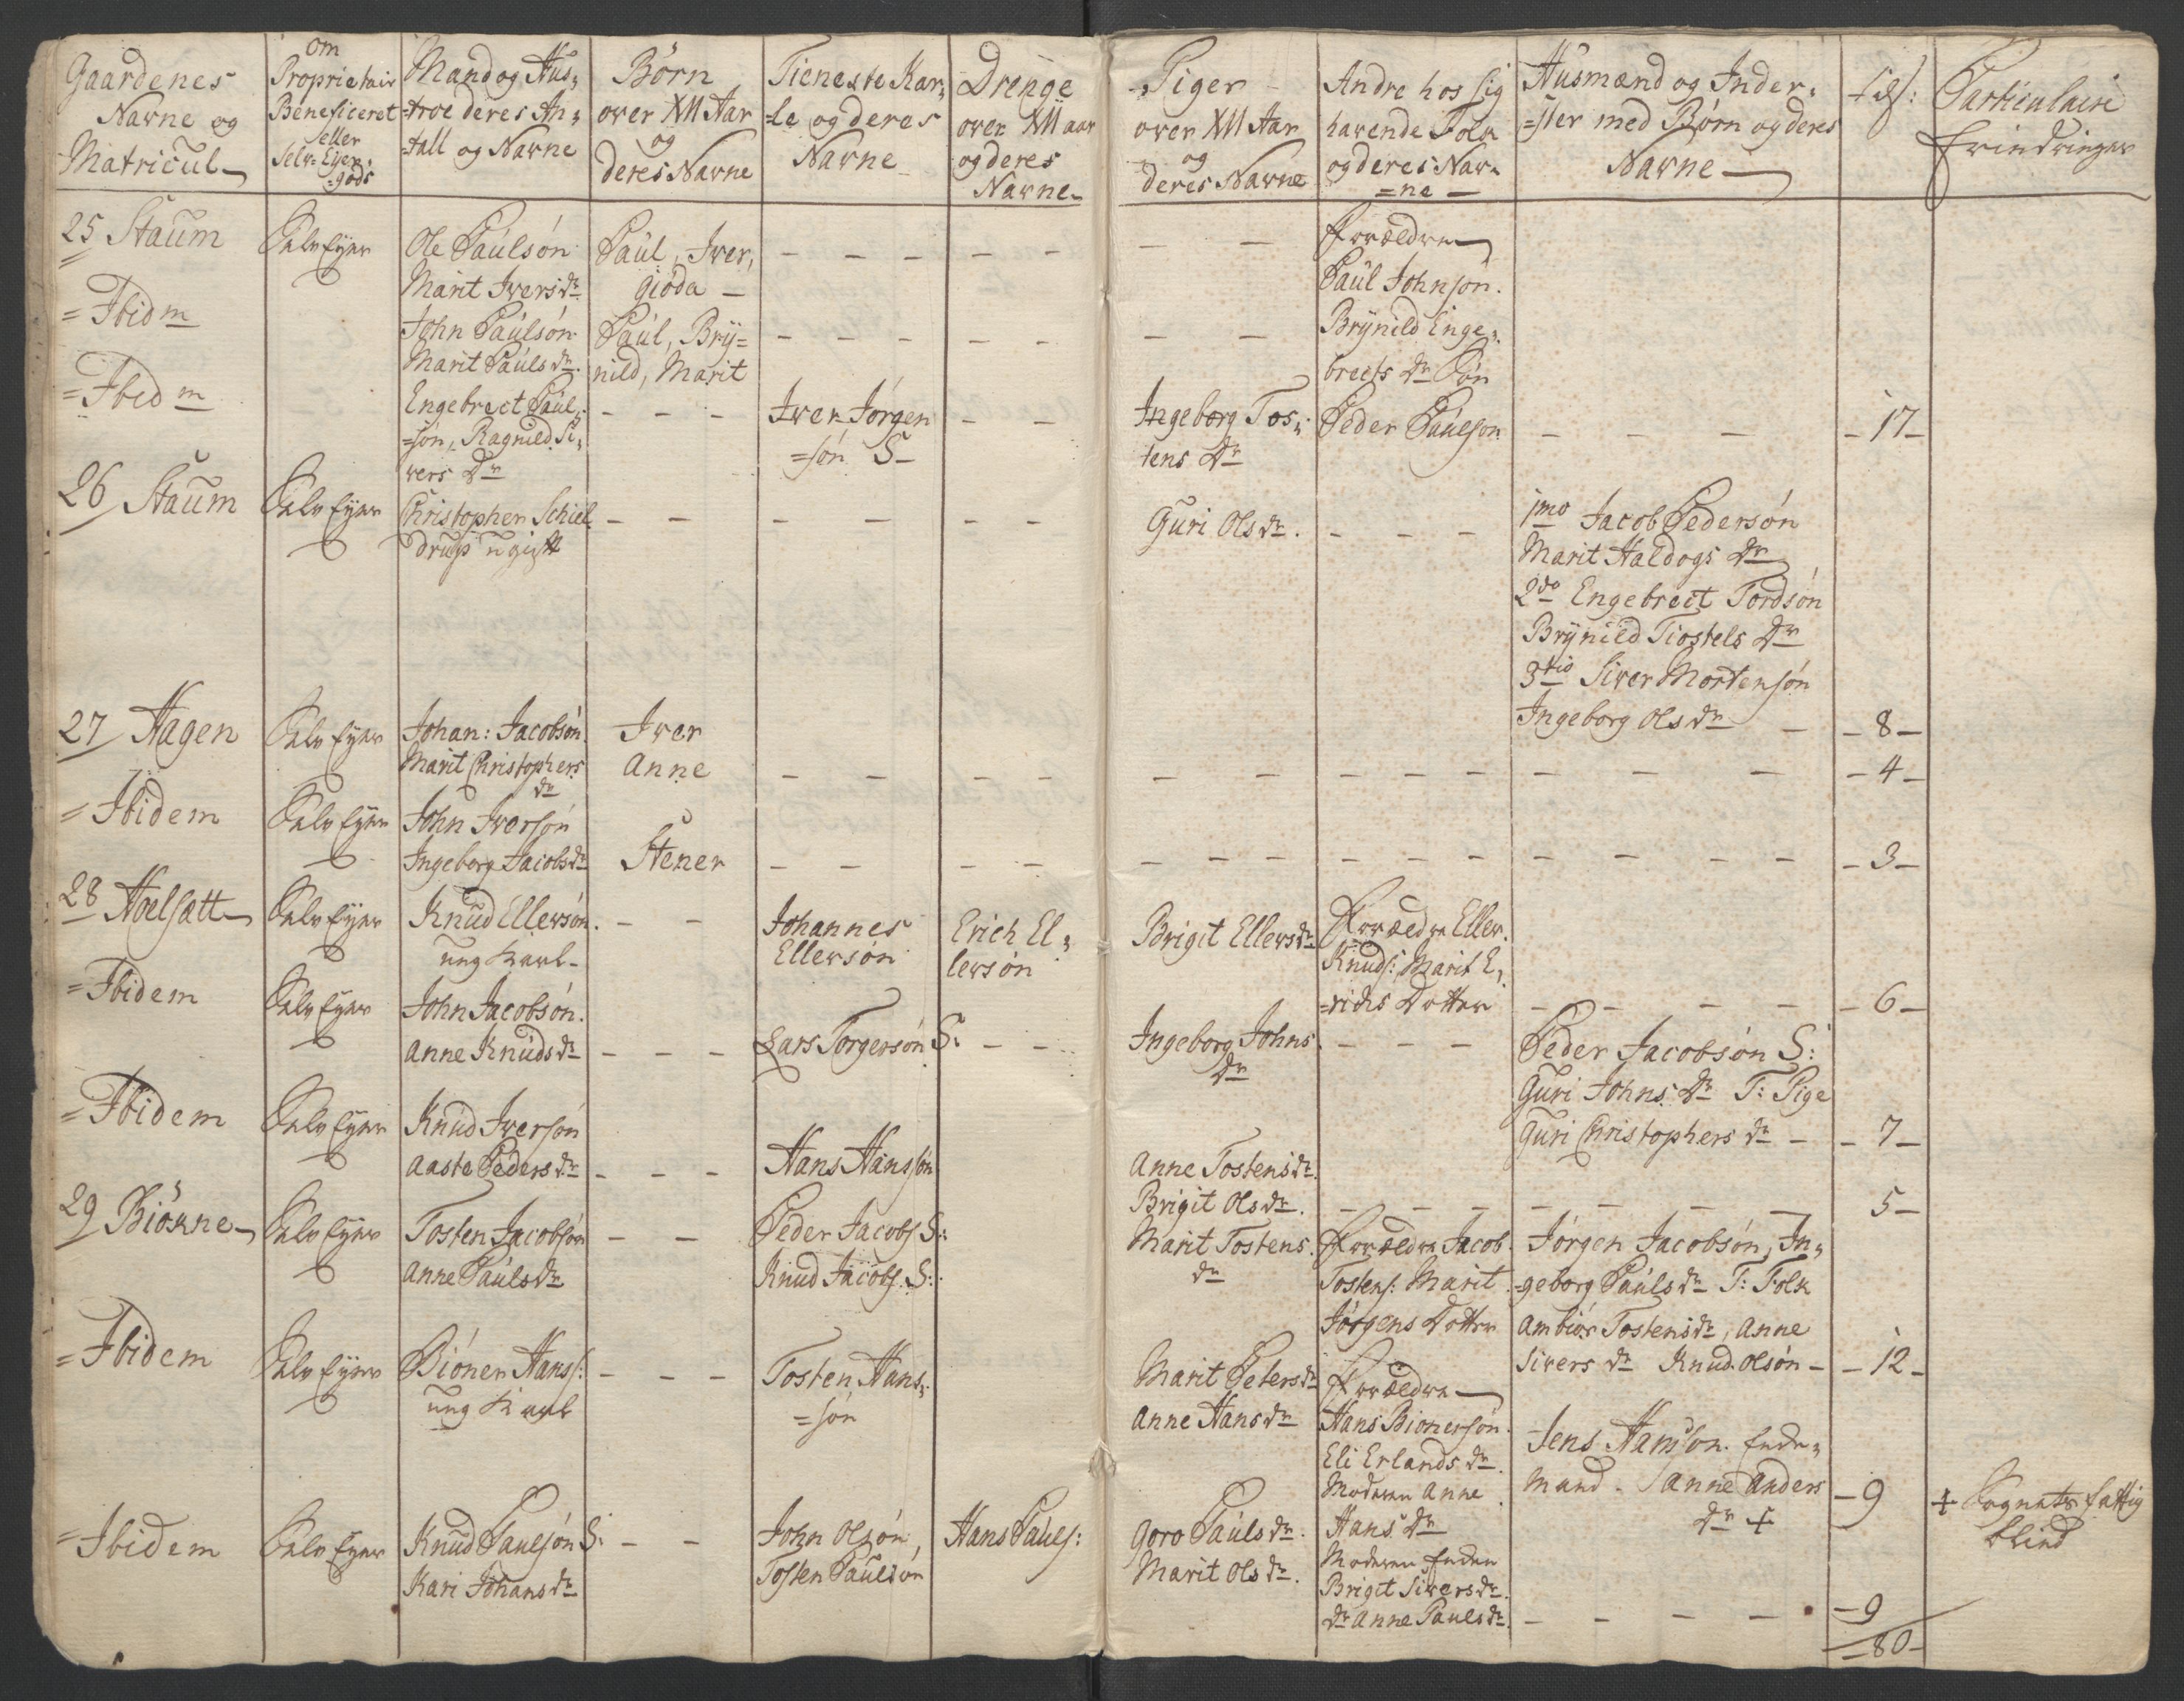 Gaardenes
Navne og
Matricul
Om
Proprietair
Beneficeret
eller
Selv-Eyer-
gods
Mand og Hus=
=troe deres An=
=tall og Navne
Børn
over XII Aar
og
deres Navne
Tieneste Kar=
=le og deres
Navne
Drenge
over XII aar
og deres
Navne
Piger
over XII Aar
og
deres Navne
Andre hos sig
havende Folk
og deres Nav=
=ne
Husmænd og Inder=
=ster med Børn og deres
Navne
Particulaire
Erindringer
25 Staum
Selv Eyer
Ole Paulsøn
Marit Ivers dr
Paul, Iver,
Giøda
Forældre
Paul Johnsøn.
= Ibidm
John Paulsøn
Marit Pauls dr.
Paul, Bry=
nild, Marit
Brynild Enge=
brects Dr Søn
= Ibidm
Engebrect Paul=
=søn, Ragnild Si=
vers Dr
Iver Jørgen
=søn S
Ingeborg Tos=
tens Dr
Peder Paulson
17
26 Staum
Selv Eyer
Christopher Schiel
drup ugift
Guri Ols dr.
1mo Jacob Pedersøn
Marit Haldogs Dr
2do Engebrect Tordsøn
Brynild Tiostels Dr
3tio Siver Mortensøn
Ingeborg Ols dr
8
27 Hagen
Selv Eyer
Johan: Jacobsøn
Marit Christophers
dr
Iver
Anne
4
= Ibidem
Selv Eyer
John Iversøn
Ingeborg Jacobs dr
Stener
3
28 Hoelsætt
Selv Eyer
Knud Ellersøn.
ung Karl
Johannes
Ellersøn
Erich El=
lersøn
Brigit Ellers dr
Forældre Eller
Knuds: Marit E=
=richs Dotter
6
= Ibidem
Selv Eyer
John Jacobsøn.
Anne Knuds dr
Lars Torgersøn S:
Ingeborg Johns
Dr
Peder Jacobsøn S:
Guri Johns Dr T: Pige
Guri Christophers dr
7
= Ibidem
Selv Eyer
Knud Iversøn
Aaste Peders dr
Hans Hanssøn
Anne Tostens dr.
Brigit Ols dr.
5
29 Biøkne
Selv Eyer
Tosten Jacobsøn
Anne Pauls dr
Peder Jacobs S:
Knud Jacobs. S:
Marit Tostens
dr
Forældre Jacob
Tostens: Marit
Jørgens Dotter
Jørgen Jacobsøn, In=
=geborg Pauls dr T: Folk
Ambiør Tostens dr, Anne
Sivers dr Knud Olsøn
12
= Ibidem
Selv Eyer
Biøner Hanss:
ung Karl
Tosten Hans=
=søn
Marit Peters dr
Anne Hans dr
Forældre
Hans Bionersøn.
Eli Erlands dr.
Moderen Anne
Hans Dr
Jens Hansøn. Enke=
mand. Anne Anders
dr +
9
+ Sognets fattig
blind
= Ibidem
Selv Eyer
Knud Paulsøn S:
Kari Johans dr
John Olsøn,
Tosten Paulsøn
Hans Pauls:
Goro Pauls dr.
Marit Ols dr.
Moderen Enken
Brigit Sivers dr.
Dr Anne Pauls dr.
9
80